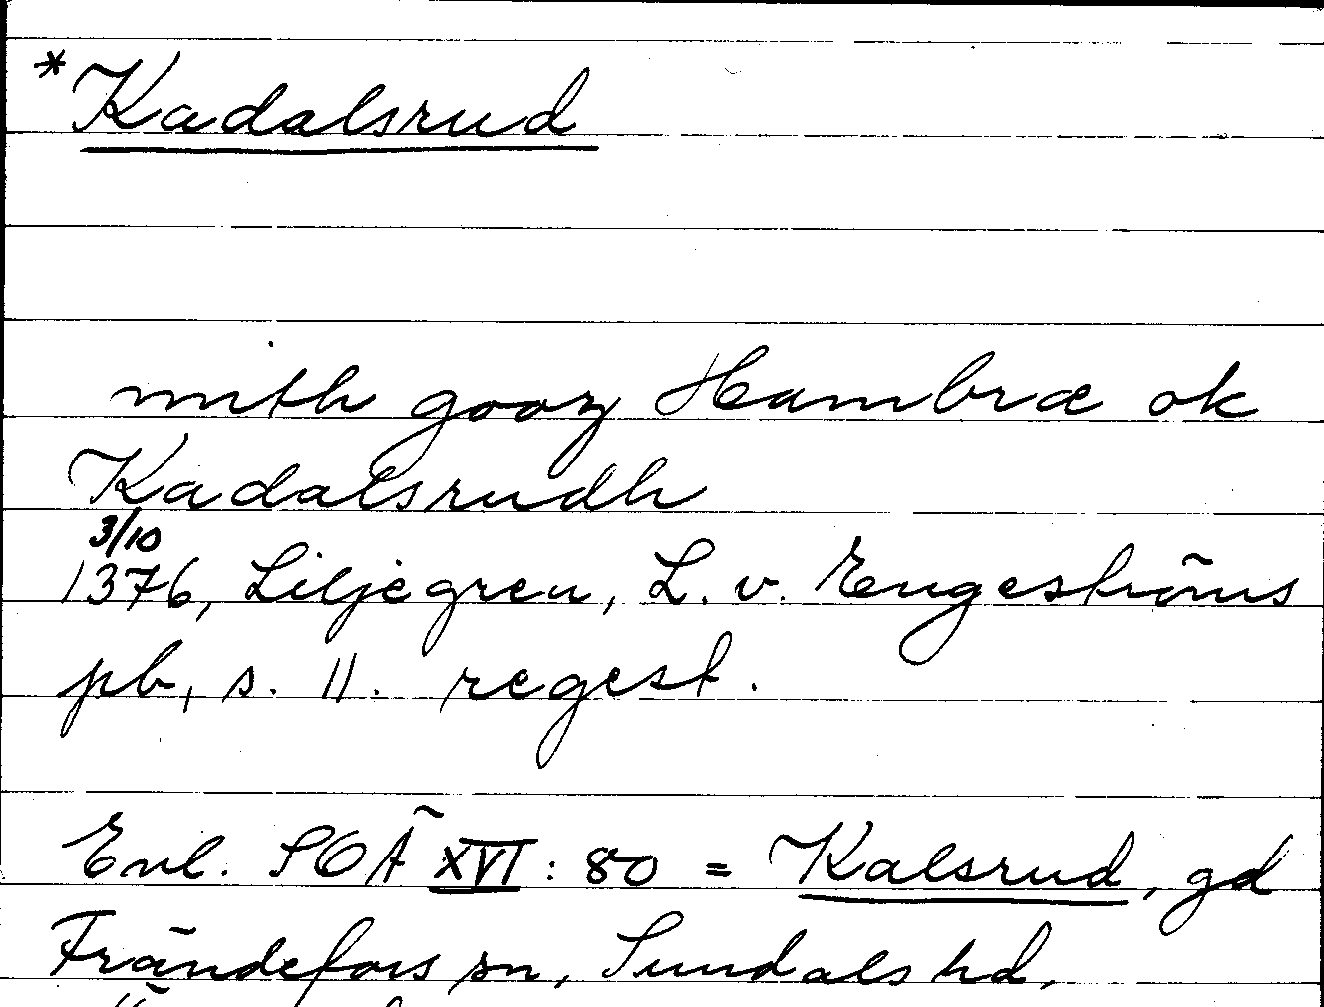 *Kadalsrud
mith gooz Hambræ ok
Kadalsrudh
3/10
1376, Liljegren, L. v. Engeströms
pb, s. 11. regest.
Enl. SOÄ XVI : 80 = Kalsrud, gd
Frändefors sn, Sundals hd,